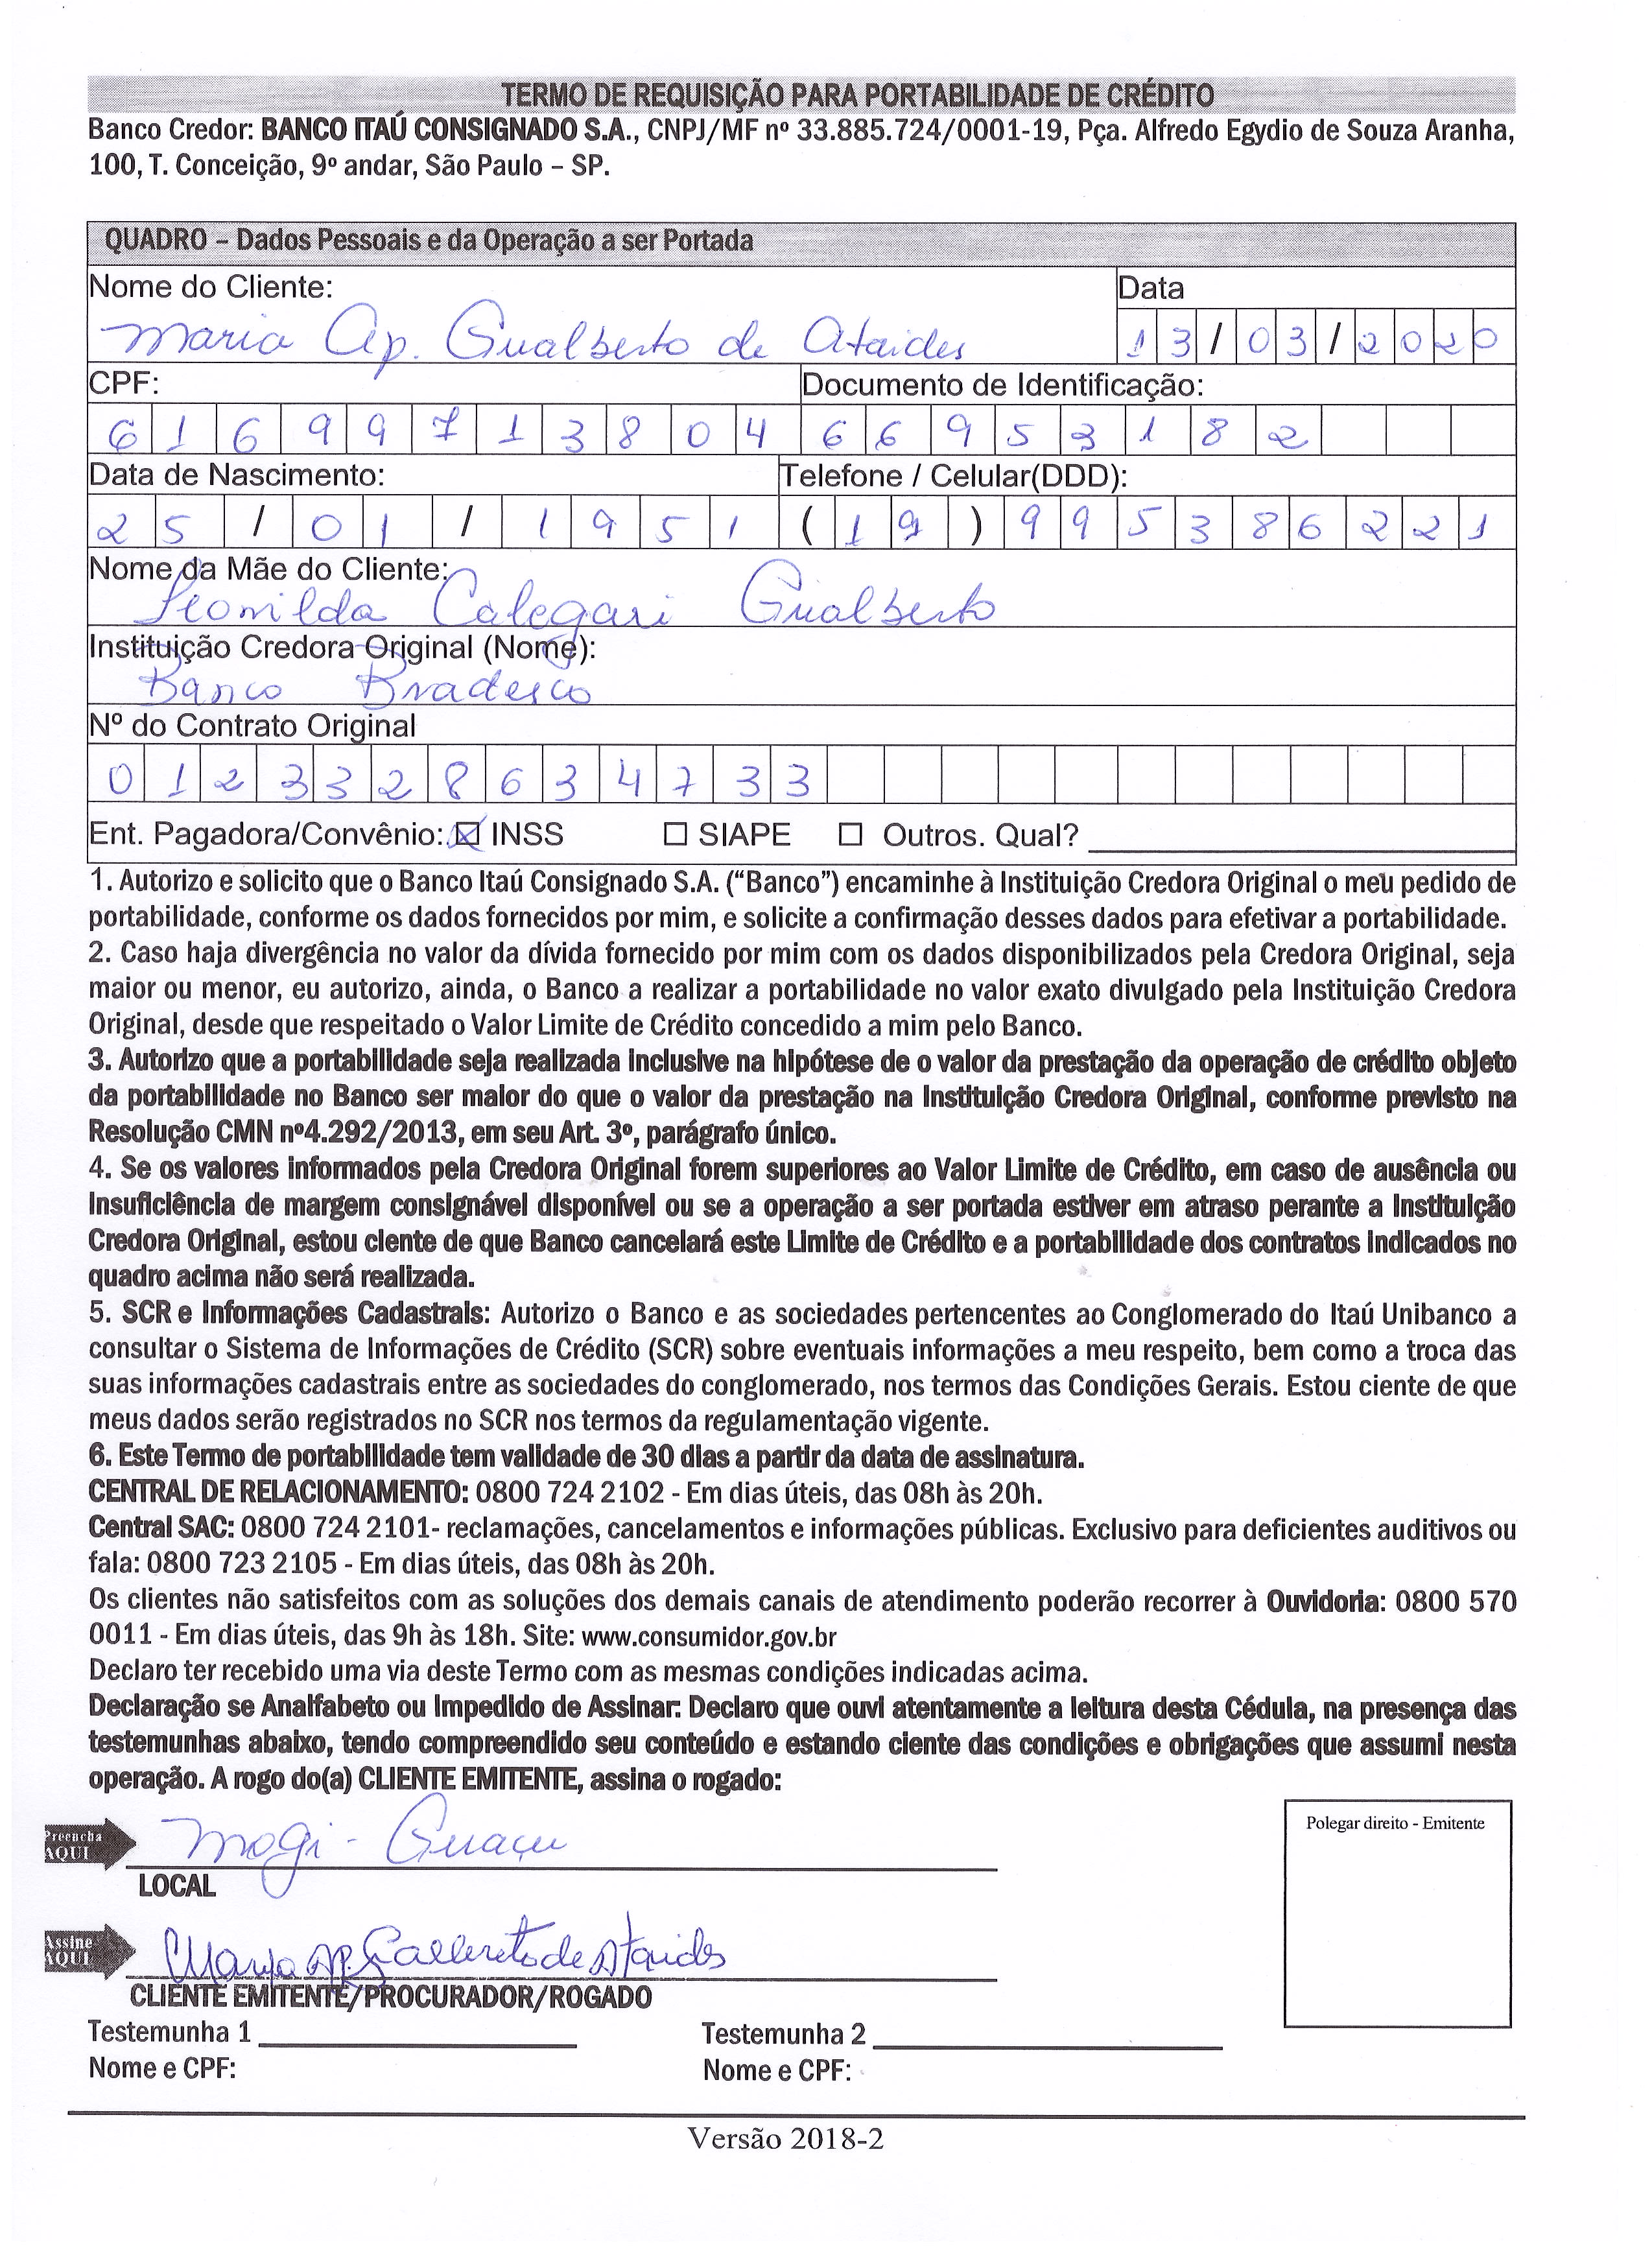 TERMO DE REQUISIÇÃO PARA PORTABILIDADE DE CRÉDITO
Banco Credor: BANCO ITAÚ CONSIGNADO S.A., CNPJ/MF nº 33.885.724/0001-19, Pça. Alfredo Egydio de Souza Aranha,
100, T. Conceição, 9º andar, São Paulo – SP.
QUADRO – Dados Pessoais e da Operação a ser Portada
Nome do Cliente: Data
Maria Ap. Gualberto de Ataides 13/03/2020
CPF: Documento de Identificação:
61699713804 66953182
Data de Nascimento: Telefone / Celular(DDD):
25/01/1951 (19)995386221
Nome da Mãe do Cliente:
Leonilda Calegari Gualberto
Instituição Credora Original (Nome):
Banco Bradesco
Nº do Contrato Original
0123328634733
Ent. Pagadora/Convênio: ☒ INSS ☐ SIAPE ☐ Outros. Qual?
1. Autorizo e solicito que o Banco Itaú Consignado S.A. (“Banco”) encaminhe à Instituição Credora Original o meu pedido de
portabilidade, conforme os dados fornecidos por mim, e solicite a confirmação desses dados para efetivar a portabilidade.
2. Caso haja divergência no valor da dívida fornecido por mim com os dados disponibilizados pela Credora Original, seja
maior ou menor, eu autorizo, ainda, o Banco a realizar a portabilidade no valor exato divulgado pela Instituição Credora
Original, desde que respeitado o Valor Limite de Crédito concedido a mim pelo Banco.
3. Autorizo que a portabilidade seja realizada inclusive na hipótese de o valor da prestação da operação de crédito objeto
da portabilidade no Banco ser maior do que o valor da prestação na Instituição Credora Original, conforme previsto na
Resolução CMN nº4.292/2013, em seu Art. 3º, parágrafo único.
4. Se os valores informados pela Credora Original forem superiores ao Valor Limite de Crédito, em caso de ausência ou
insuficiência de margem consignável disponível ou se a operação a ser portada estiver em atraso perante a Instituição
Credora Original, estou ciente de que Banco cancelará este Limite de Crédito e a portabilidade dos contratos indicados no
quadro acima não será realizada.
5. SCR e Informações Cadastrais: Autorizo o Banco e as sociedades pertencentes ao Conglomerado do Itaú Unibanco a
consultar o Sistema de Informações de Crédito (SCR) sobre eventuais informações a meu respeito, bem como a troca das
suas informações cadastrais entre as sociedades do conglomerado, nos termos das Condições Gerais. Estou ciente de que
meus dados serão registrados no SCR nos termos da regulamentação vigente.
6. Este Termo de portabilidade tem validade de 30 dias a partir da data de assinatura.
CENTRAL DE RELACIONAMENTO: 0800 724 2102 - Em dias úteis, das 08h às 20h.
Central SAC: 0800 724 2101- reclamações, cancelamentos e informações públicas. Exclusivo para deficientes auditivos ou
fala: 0800 723 2105 - Em dias úteis, das 08h às 20h.
Os clientes não satisfeitos com as soluções dos demais canais de atendimento poderão recorrer à Ouvidoria: 0800 570
0011 - Em dias úteis, das 9h às 18h. Site: www.consumidor.gov.br
Declaro ter recebido uma via deste Termo com as mesmas condições indicadas acima.
Declaração se Analfabeto ou Impedido de Assinar: Declaro que ouvi atentamente a leitura desta Cédula, na presença das
testemunhas abaixo, tendo compreendido seu conteúdo e estando ciente das condições e obrigações que assumi nesta
operação. A rogo do(a) CLIENTE EMITENTE, assina o rogado:
Polegar direito - Emitente
Preencha
AQUI
Mogi - Guaçu
LOCAL
Assine
AQUI
Maria Ap. Gualberto de Ataides
CLIENTE EMITENTE/PROCURADOR/ROGADO
Testemunha 1 Testemunha 2
Nome e CPF: Nome e CPF:
Versão 2018-2